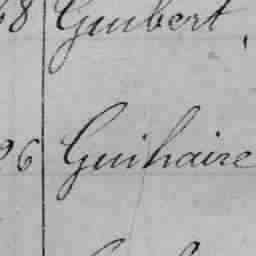 48 Guibert,
96 Guihaire